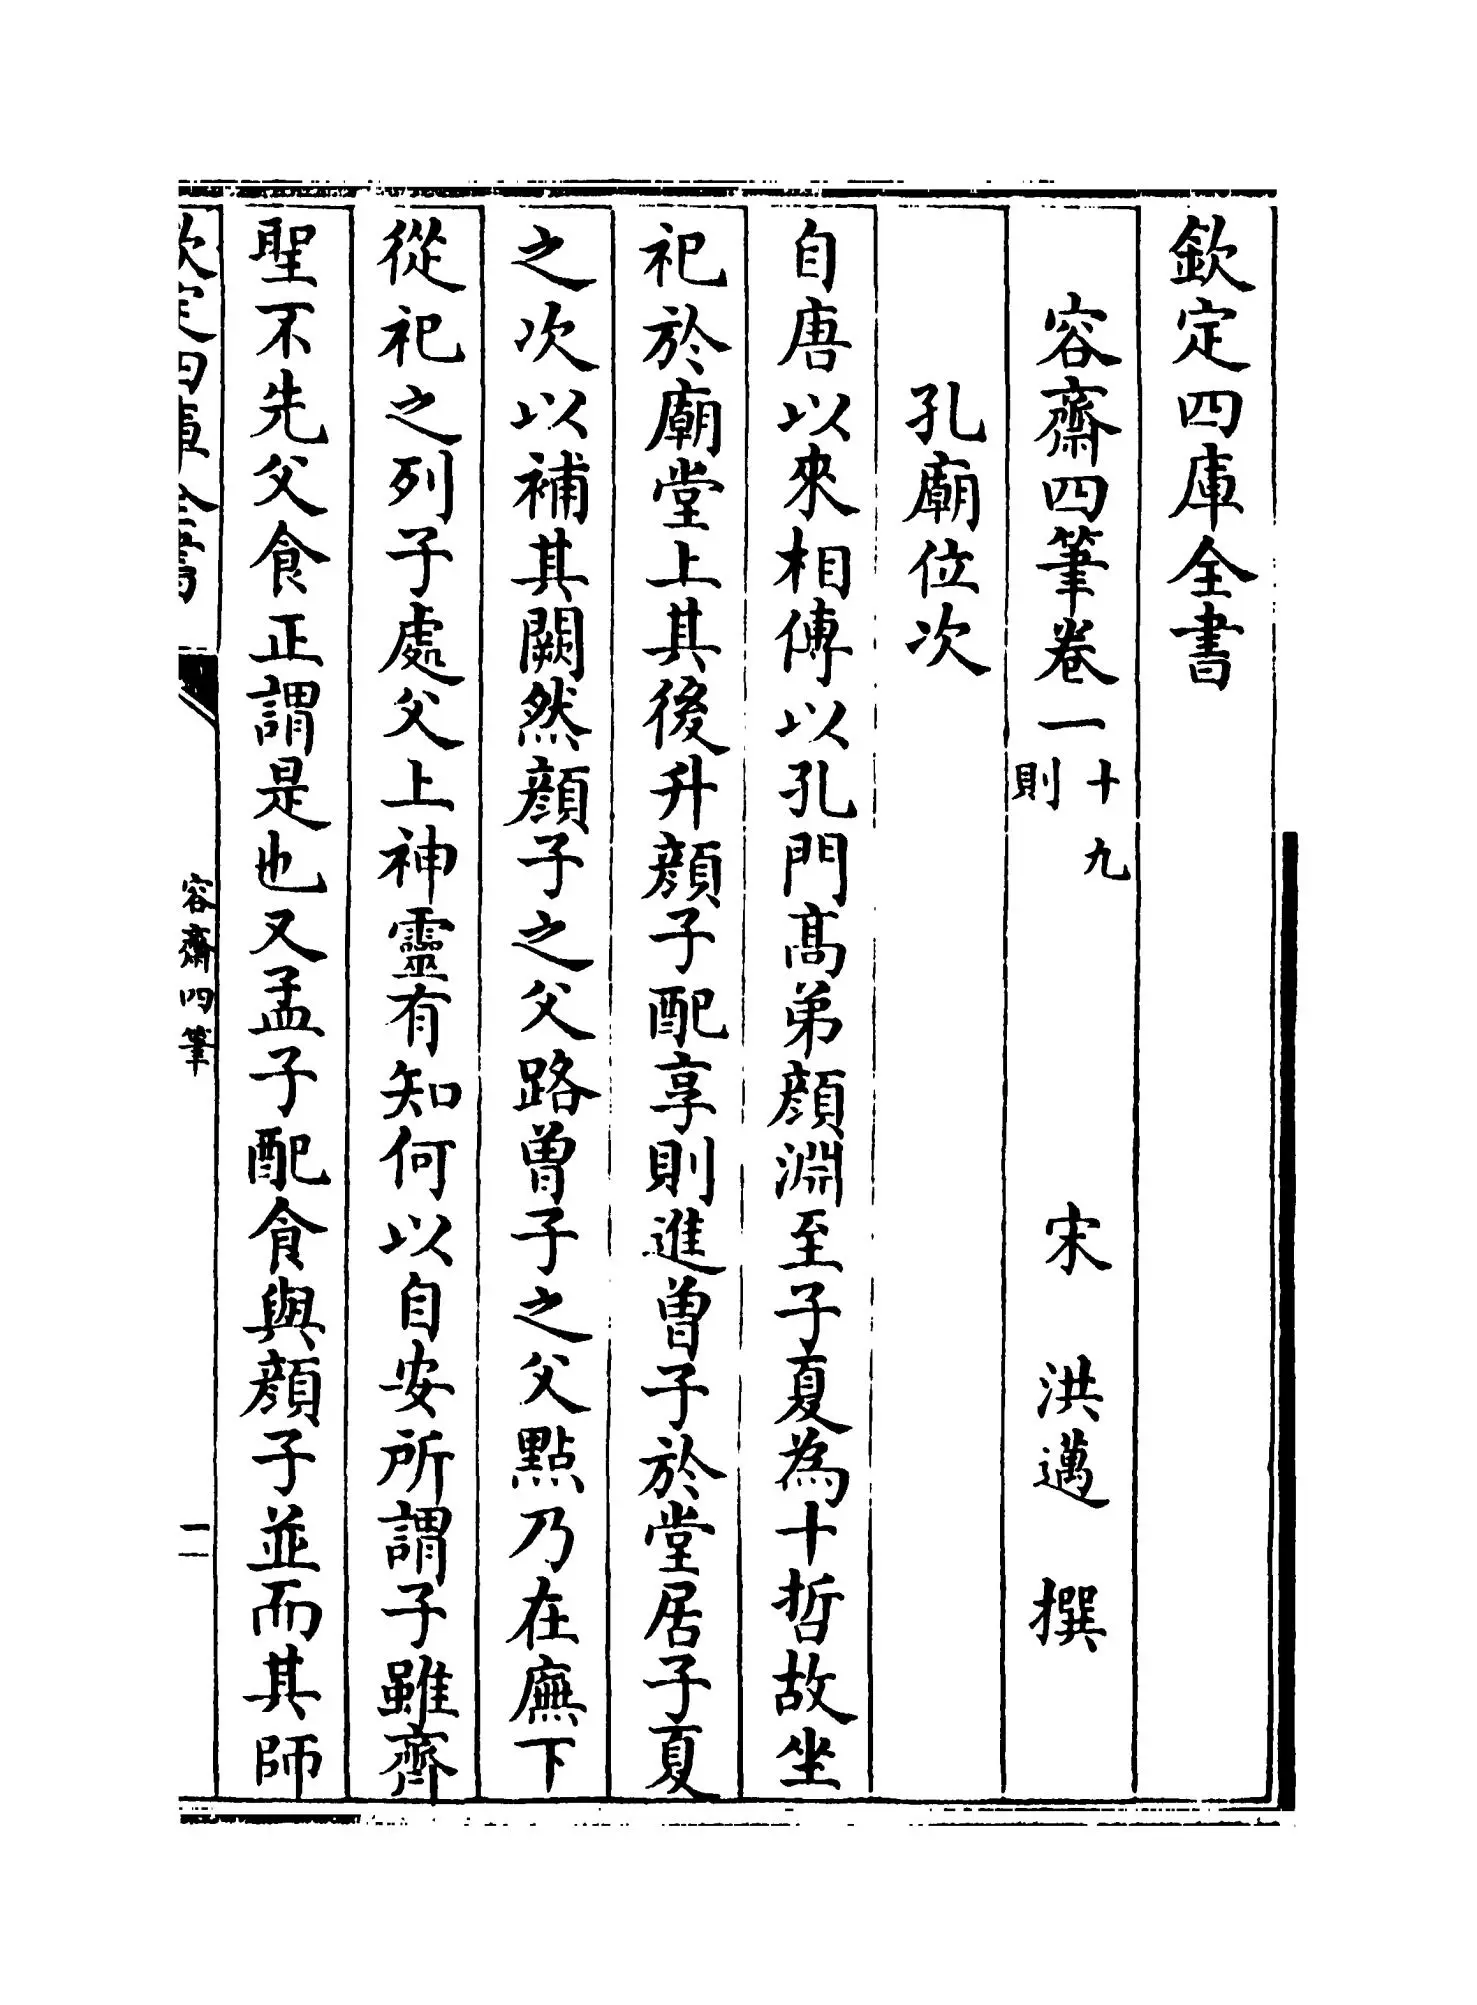 欽定四庫全書
容齋四筆卷一十九則 宋 洪邁 撰
孔廟位次
自唐以來相傳以孔門髙弟顔淵至子夏為十哲故坐
祀於廟堂上其後升顔子配享則進曾子於堂居子夏
之次以補其闕然顔子之父路曾子之父點乃在廡下
從祀之列子處父上神靈有知何以自安所謂子雖齊
聖不先父食正謂是也又孟子配食與顔子並而其師
欽定四庫全書
容齋四筆
一